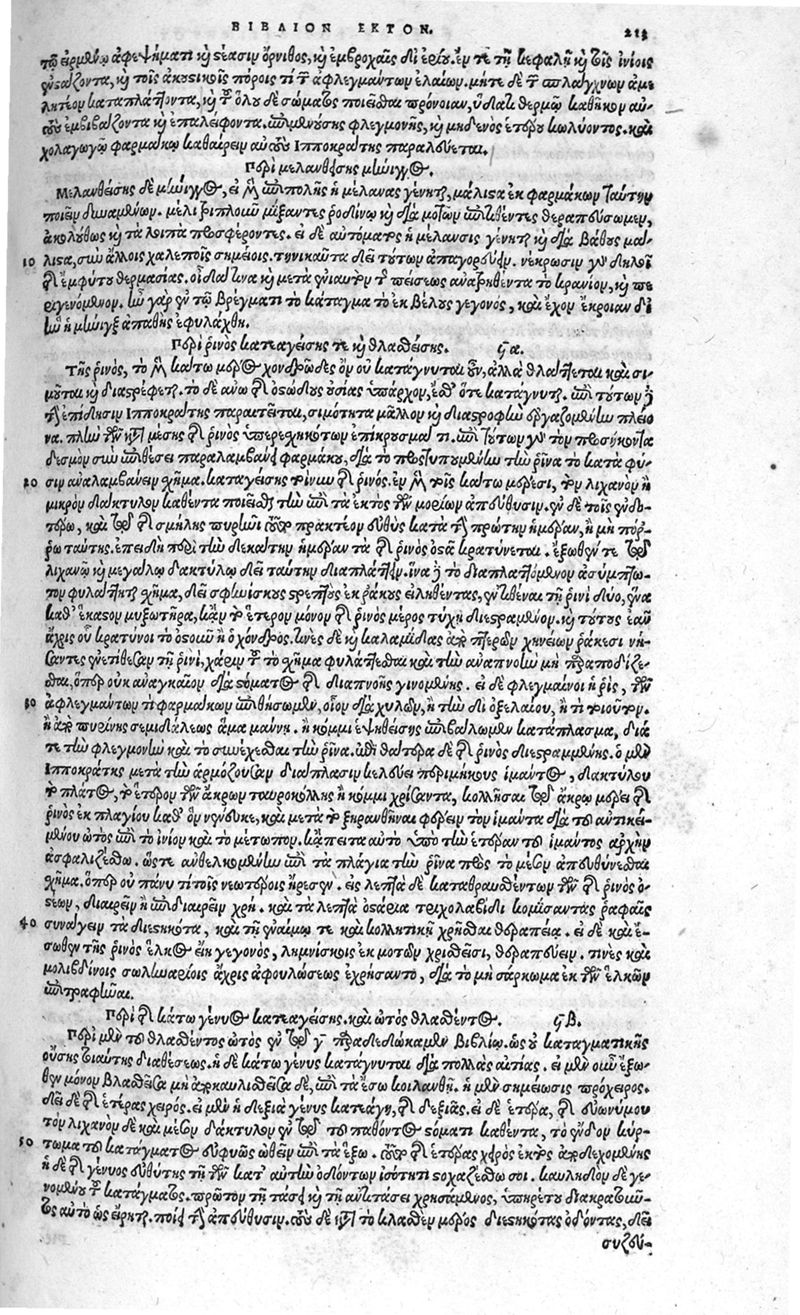 ΒΙΒΛΙΟΝ ΕΚΤΟΝ. 213
τῷ εἰρημένῳ ἀφεψήματι καὶ στέασιν ὄρνιθος, καὶ ἐμβροχαῖς δι' ἐρίου. ἔν τε τῇ κεφαλῇ καὶ τοῖς ἰνίοις
ἐνστάζοντα, καὶ τοῖς ἀκουστικοῖς πόροις τὶ τῶν ἀφλεγμάντων ἐλαίων. μήτε δὲ τῶν σπλάγχνων ἀμε-
λητέον καταπλάττοντα, καὶ τοῦ ὅλου δὲ σώματος ποιεῖσθαι πρόνοιαν, ὕδατι θερμῷ καθῆκον αὐ-
τοὺς ἐμβιβάζοντα καὶ ἐπαλείφοντα. ἐπιμενούσης φλεγμονῆς, καὶ μηδενὸς ἑτέρου κωλύοντος. καὶ
χολαγωγῷ φαρμάκῳ καθαίρειν αὐτοὺς Ἱπποκράτης παρακελεύεται.
Περὶ μελανθείσης μήνιγγος.
Μελανθείσης δὲ μήνιγγος, εἰ μὲν ἐπιπολῆς ἡ μέλανσις γένηται, μάλιστα ἐκ φαρμάκων ταύτην
ποιεῖν δυναμένων. μέλι τριπλοῦν μίξαντες ῥοδίνῳ καὶ διὰ μοτῶν ἐπιτιθέντες θεραπεύσωμεν,
ἀκολούθως καὶ τὰ λοιπὰ προσφέροντες. εἰ δὲ αὐτόματος ἡ μέλανσις γένηται καὶ διὰ βάθους μά-
10 λιστα, σὺν ἄλλοις χαλεποῖς σημείοις. τηνικαῦτα δεῖ τούτων ἀπαγορεύειν. νέκρωσιν γὰρ δηλοῖ
τῆς ἐμφύτου θερμασίας. οἶδα τινα καὶ μετὰ ἐνιαυτὸν τῆς πτώσεως ἀνατρηθέντα τὸ κρανίον, καὶ πε-
ριγενόμενον. ἦν γὰρ ἐν τῷ βρέγματι τὸ κάταγμα τὸ ἐκ βέλους γεγονὸς, καὶ ἔχον ἔκροιαν δι'
ἣν ἡ μήνιγξ ἀπαθὴς ἐφυλάχθη.
Περὶ ῥινὸς καταγείσης τε καὶ θλασθείσης. ϟα.
Τῆς ῥινὸς, τὸ μὲν κάτω μέρος χονδρῶδες ὂν οὐ κατάγνυται μὲν, ἀλλὰ θλᾶται καὶ σι-
μοῦται καὶ διαστρέφεται. τὸ δὲ ἄνω τῆς ὀστώδους οὐσίας ὑπάρχον, ἔσθ' ὅτε κατάγνυται. ἐπὶ τούτων δὲ
τὴν ἐπίδεσιν Ἱπποκράτης παραιτεῖται, σιμότητα μᾶλλον καὶ διαστροφὴν ἐργαζομένην πλείο-
να. πλὴν τῶν κατὰ μέσης τῆς ῥινὸς ὑπερεχηκότων ἐπικρούσματι. ἐπὶ τούτων γὰρ τὸν προσήκοντα
δεσμὸν σὺν ἐπιθέσει παραλαμβάνει φαρμάκου, διὰ τὸ προστυπουμένην τὴν ῥῖνα τὸ κατὰ φύ-
20 σιν ἀναλαμβάνειν σχῆμα. καταγείσης τοίνυν τῆς ῥινὸς. ἐν μὲν τοῖς κάτω μέρεσι, τὸν λιχανὸν ἢ
μικρὸν δάκτυλον καθέντα ποιεῖσθαι τὴν ἐπὶ τὰ ἐκτὸς τῶν μορίων ἀπεύθυσιν. ἐν δὲ τοῖς ἐνδο-
τέρω, καὶ τῷ τῆς σμήλης πυρῆνι τοῦτο πρακτέον εὐθὺς κατὰ τὴν πρώτην ἡμέραν, ἢ μὴ πόρ-
ρω ταύτης. ἐπειδὴ περὶ τὴν δεκάτην ἡμέραν τὰ τῆς ῥινὸς ὀστᾶ κρατύνεται. ἔξωθεν τε τῷ
λιχανῷ καὶ μεγάλῳ δακτύλῳ δεῖ ταύτην διαπλάττειν. ἵνα δὲ τὸ διαπλαττόμενον ἀσύμπτω-
τον φυλάττηται σχῆμα, δεῖ σφηνίσκους στρεπτοὺς ἐκ ῥάκους εἰληθέντας, ἐντιθέναι τῇ ῥινὶ δύο, ἕνα
καθ' ἕκαστον μυξωτῆρα, κἂν τὸ ἕτερον μόνον τῆς ῥινὸς μέρος τύχῃ διεστραμμένον. καὶ τούτους ἐᾶν
ἄχρις οὗ κρατύνοι τὸ ὀστοῦν ἢ ὁ χόνδρος. τινὲς δὲ καὶ καλαμίδας ἀπὸ πτερῶν χηνείων ῥάκεσι νή-
σαντες ἐνετίθεσαν τῇ ῥινὶ, χάριν τοῦ τὸ σχῆμα φυλάττεσθαι καὶ τὴν ἀναπνοὴν μὴ παραποδίζε-
σθαι, ὅπερ οὐκ ἀναγκαῖον διὰ στόματος τῆς διαπνοῆς γινομένης. εἰ δὲ φλεγμαίνοι ἡ ῥὶς, τῶν
30 ἀφλεγμάντων τὶ φαρμάκων ἐπιθήσωμεν, οἷον διὰ χυλῶν, ἢ τὴν δι' ὀξελαίου, ἤ τι τοιοῦτον.
ἢ ἀπὸ πυρίνης σεμιδάλεως ἅμα μάννῃ. ἢ κόμμι ἑψηθείσης ἐπιβάλωμεν κατάπλασμα, διά
τε τὴν φλεγμονὴν καὶ τὸ συνέχεσθαι τὴν ῥῖνα. ἐπὶ θάτερα δὲ τῆς ῥινὸς διεστραμμένης. ὁ μὲν
Ἱπποκράτης μετὰ τὴν ἁρμόζουσαν διάπλασιν κελεύει περιμήκους ἱμάντος, δακτύλου
τὸ πλάτος, τὸ ἕτερον τῶν ἄκρων ταυροκόλλης ἢ κόμμι χρίσαντα, κολλῆσαι τῷ ἄκρῳ μέρει τῆς
ῥινὸς ἐκ πλαγίου καθ' ὃν νένευκε, καὶ μετὰ τὸ ξηρανθῆναι φέρειν τὸν ἱμάντα διὰ τοῦ ἀντικει-
μένου ὠτὸς ἐπὶ τὸ ἰνίον καὶ τὸ μέτωπον. κἄπειτα αὐτὸ ὑπὸ τὴν ἑτέραν τοῦ ἱμάντος ἀρχὴν
ἀσφαλιζέσθω. ὥστε ἀνθελκομένην ἐπὶ τὰ πλάγια τὴν ῥῖνα πρὸς τὸ μέσον ἀπευθύνεσθαι
σχῆμα. ὅπερ οὐ πάνυ τι τοῖς νεωτέροις ἤρεσεν. εἰς λεπτὰ δὲ καταθραυσθέντων τῶν τῆς ῥινὸς ὀ-
στέων, διαιρεῖν ἢ ἐπιδιαιρεῖν χρή. καὶ τὰ λεπτὰ ὀστάρια τριχολαβίδι κομίσαντας ῥαφαῖς
40 συνάγειν τὰ διεστηκότα, καὶ τῇ ἐναίμῳ τε καὶ κολλητικῇ χρῆσθαι θεραπείᾳ. εἰ δὲ καὶ ἔ-
σωθεν τῆς ῥινὸς ἕλκος εἴη γεγονὸς, λημνίσκοις ἐκ μοτῶν χρισθεῖσι, θεραπεύειν. τινὲς καὶ
μολιβδίνοις σωληναρίοις ἄχρις ἀφουλώσεως ἐχρήσαντο, διὰ τὸ μὴ σάρκωμα ἐκ τῶν ἑλκῶν
ἐπιτραφῆναι.
Περὶ τῆς κάτω γένυος καταγείσης. καὶ ὠτὸς θλασθέντος. ϟβ.
Περὶ μὲν τοῦ θλασθέντος ὠτὸς ἐν τῷ γ παραδεδώκαμεν βιβλίῳ. ὡς οὐ καταγματικῆς
οὔσης τοιαύτης διαθέσεως. ἡ δὲ κάτω γένυς κατάγνυται διὰ πολλὰς αἰτίας. εἰ μὲν οὖν ἔξω-
θεν μόνον βλασθεῖσα μὴ ἀποκαυλισθεῖσα δὲ, ἐπὶ τὰ ἔσω κοιλανθῇ. ἡ μὲν σημείωσις πρόχειρος.
δεῖ δὲ τῆς ἑτέρας χειρὸς. εἰ μὲν ἡ δεξιὰ γένυς κατεάγη, τῆς δεξιᾶς. εἰ δὲ ἑτέρα, τῆς εὐωνύμου
τὸν λιχανὸν δὲ καὶ μέσον δάκτυλον ἐν τῷ τοῦ παθόντος στόματι καθέντα, τὸ ἔνδον κύρ-
50 τωμα τοῦ κατάγματος εὐφυῶς ὠθεῖν ἐπὶ τὰ ἔξω. τοῦτο τῆς ἑτέρας χειρὸς ἐκτὸς ἀποδεχομένης
ἡ δὲ τῆς γένυος εὐθύτης τῇ τῶν κατ' αὐτὴν ὀδόντων ἰσότητι στοχαζέσθω σοι. καυληδὸν δὲ γε-
νομένου τοῦ κατάγματος. πρῶτον τῇ τάσει καὶ τῇ ἀντιτάσει χρησάμενος, ὑπηρέτου διακρατοῦν-
τος αὐτὸ ὡς εἴρηται. ποιεῖ τὴν ἀπεύθυσιν. τοὺς δὲ κατὰ τὸ κλασθὲν μέρος διεστηκότας ὀδόντας, δεῖ
συζευ-